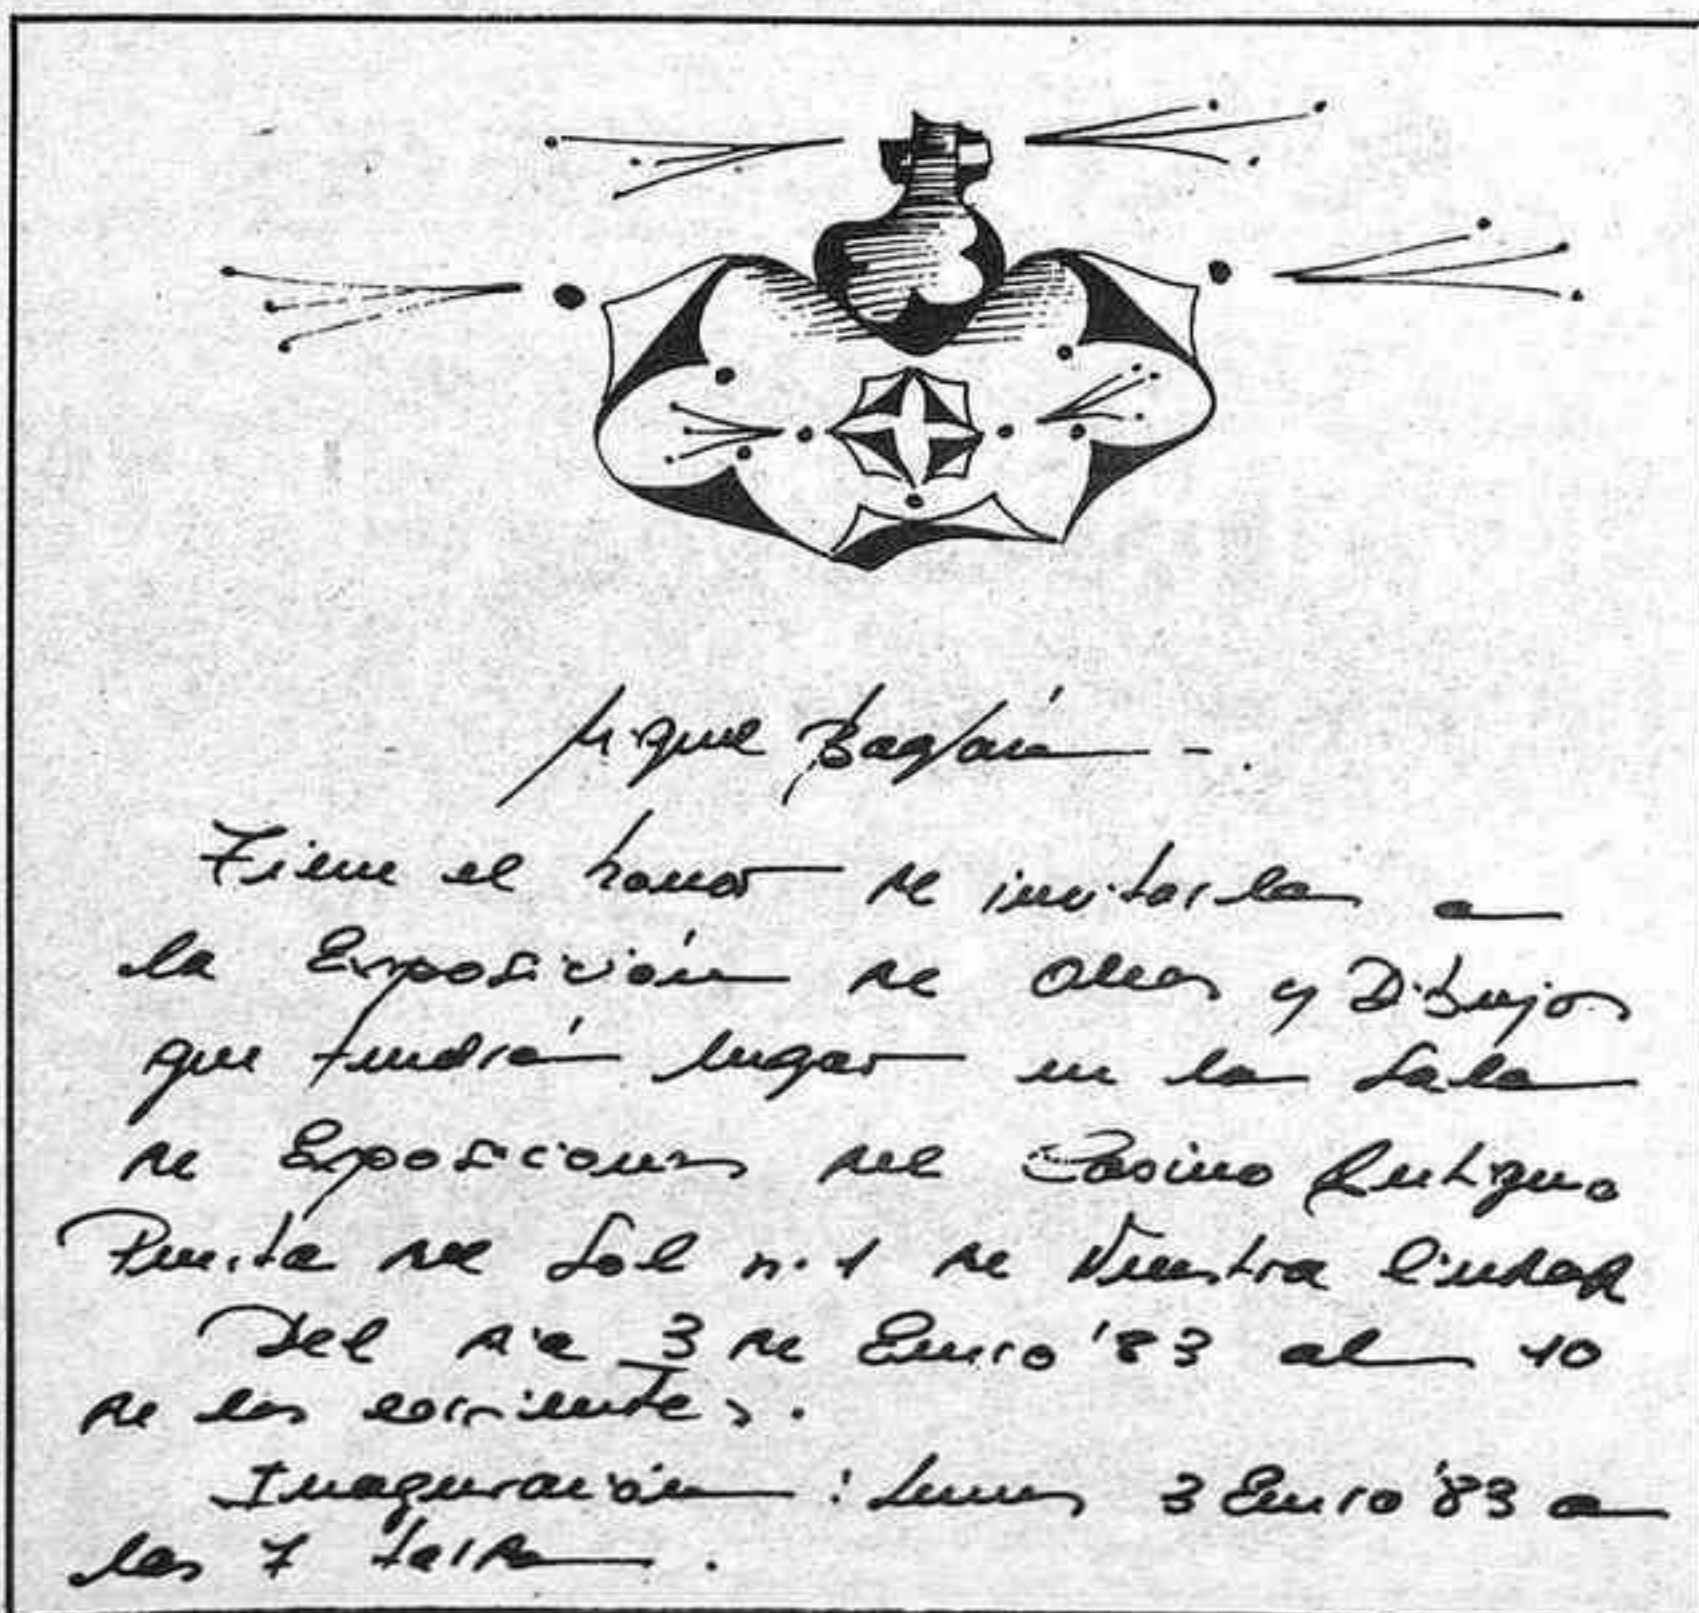 Miguel Bagván -.
Tiene el honor de invitarles a
la Exposición de Oleos y Dibujos
que tendrán lugar en la Sala
de Exposiciones del Casino Antiguo
Puerta del Sol n.1 de Nuestra Ciudad
Del día 3 de Enero '83 al 10
de los corrientes.
Inaguración : Lunes 3 Enero '83 a
las 7 tarde.